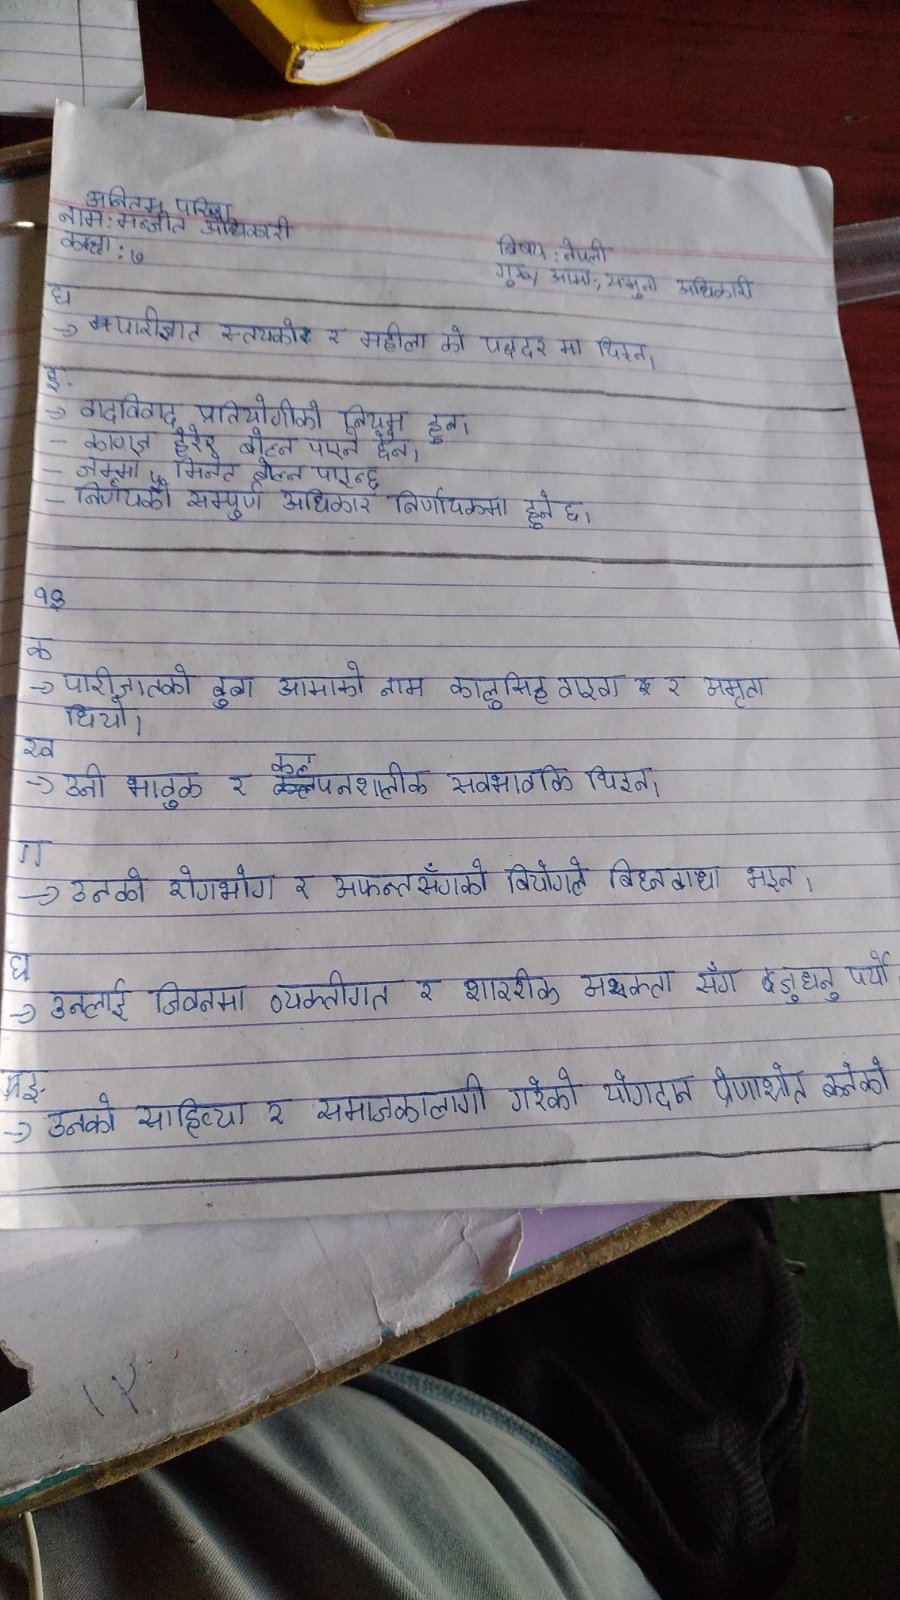 अन्तिम परिक्षा
नाम: मन्जीत अधिकारी
कक्षा: ७
बिषय: नेपली
गुरू आमा: यमुना अधिकारी
घ
→ पारीजात स्तयकोर र महीला को पक्षदर मा थिइन।
ङ.
→ वादविवाद प्रतियोगीको नियम हुन।
- कागज हेरेर बोल्न पाइने छैन।
- जम्मा ५ मिनेट बोल्न पाइन्छ
- निर्णयको सम्पुर्ण अधिकार निर्णायकमा हुने छ।
१३
क
→ पारीजातको बुबा आमाको नाम कालुसिह वाइबा र अमृता
थियो।
ख
→ उनी भावुक र कल्पनशालीक सवभावकि थिइन।
ग
→ उनको रोगभोग र अफन्तसँगको बियोगले बिघ्नबाधा भइन।
घ
→ उनलाई जिवनमा व्यक्तीगत र शाररीक अशक्ता सँग जुधनु पर्यो
ङ.
→ उनको साहित्या र समाजकालागी गरेको योगदान प्रेणाश्रोत बनेको